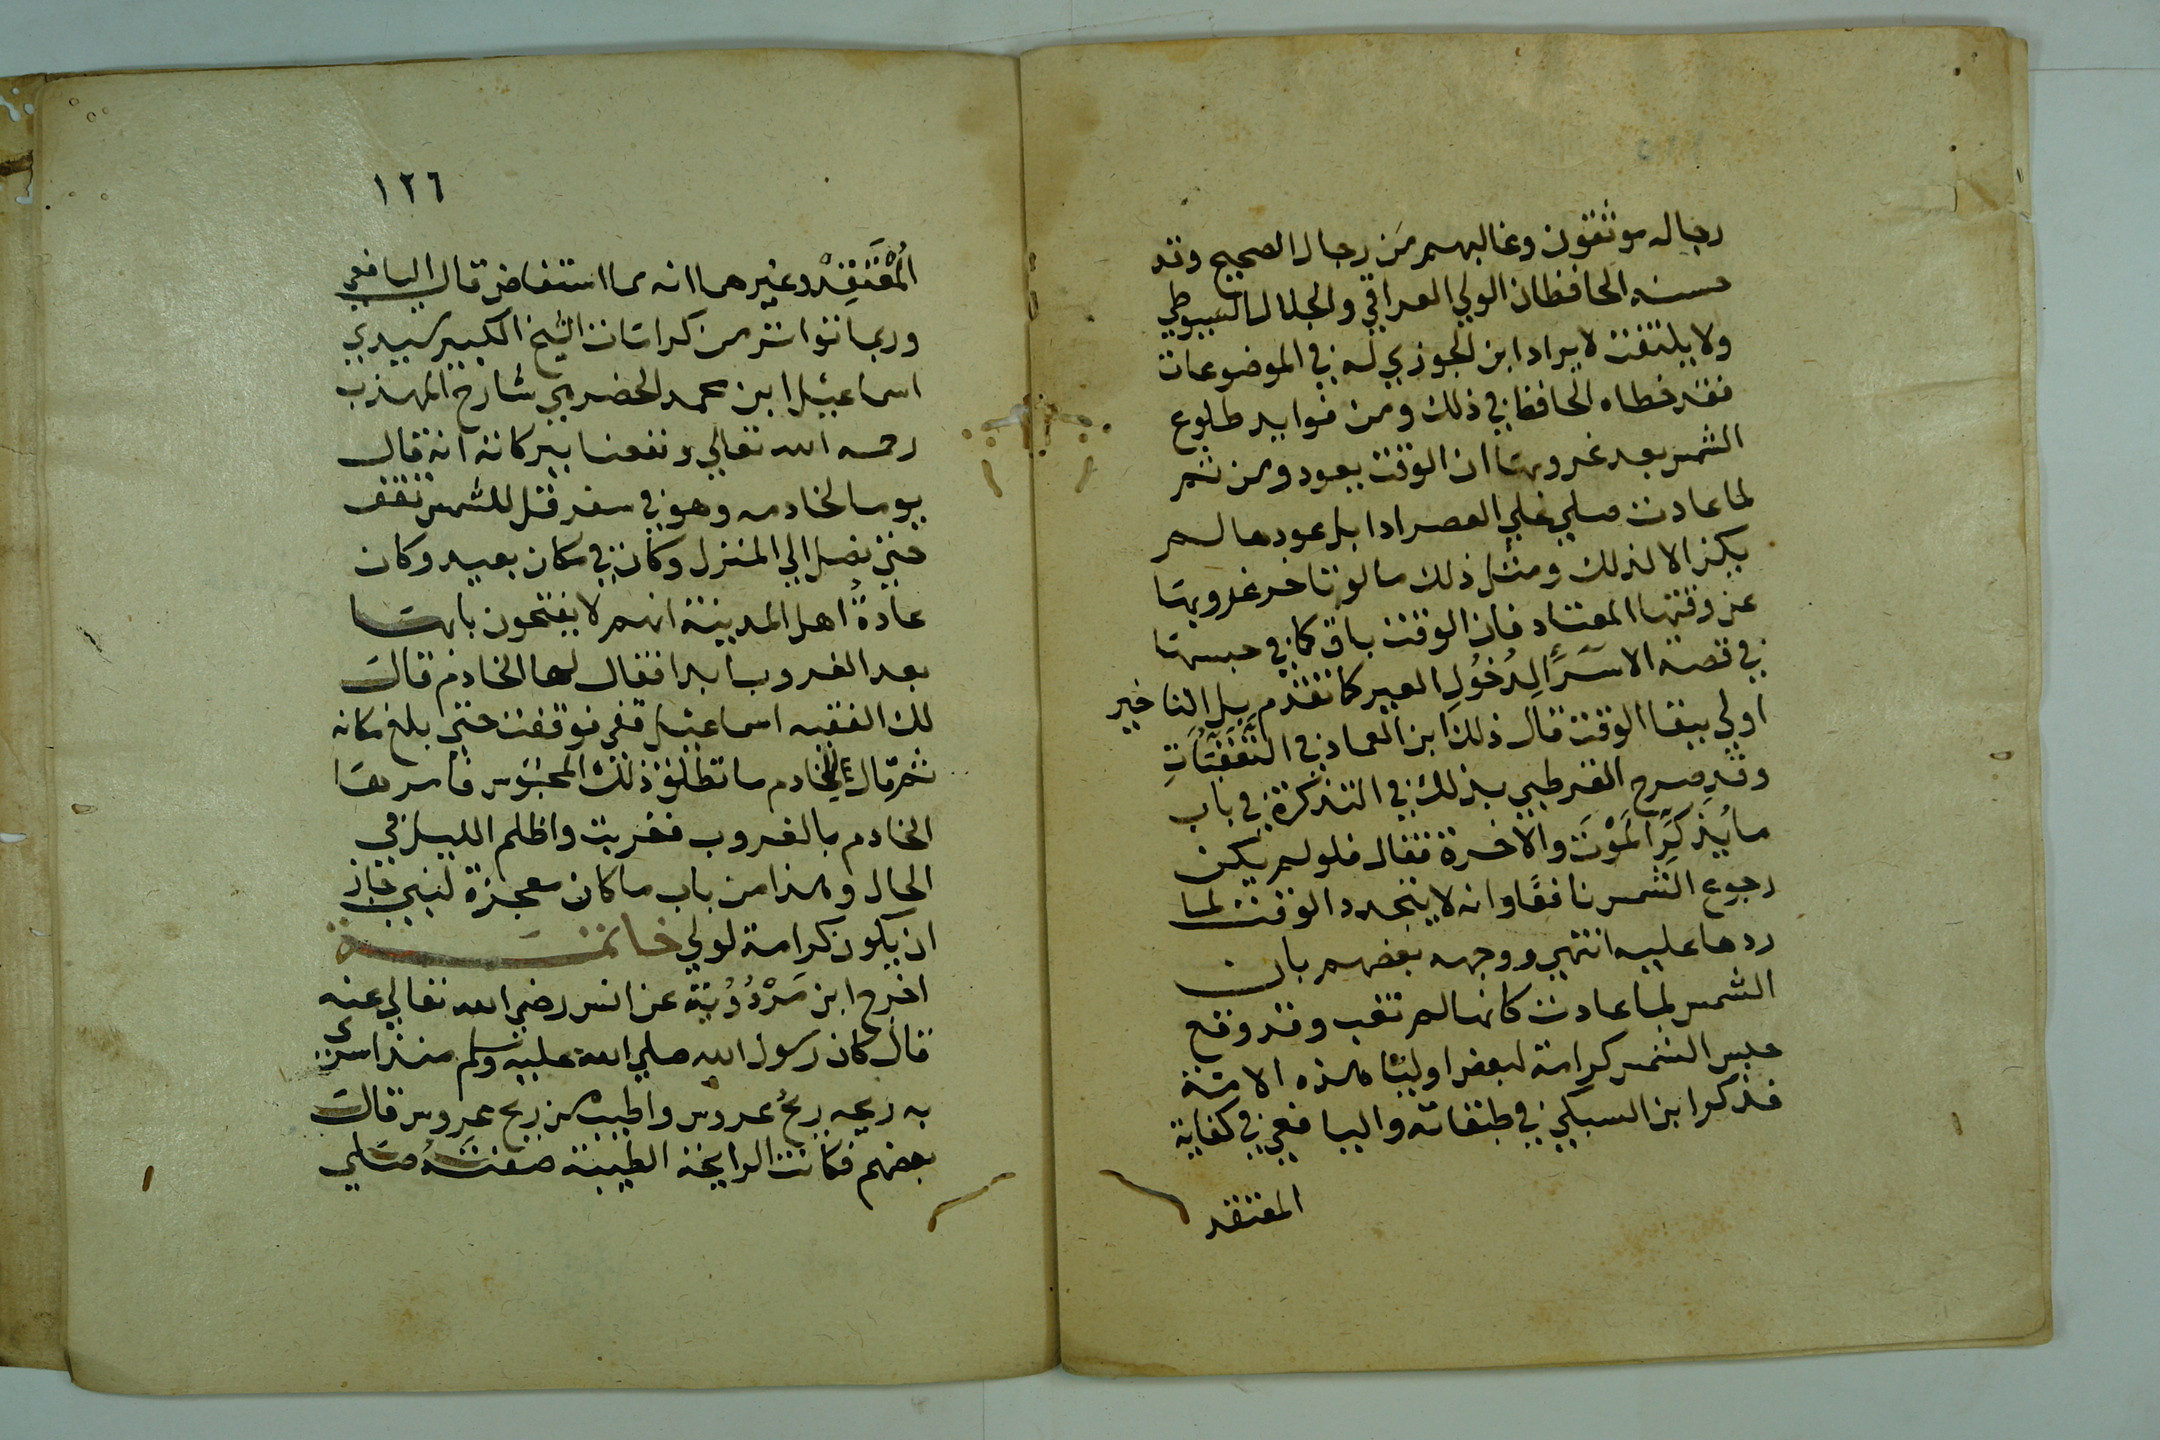 رجاله موثقون وغالبهم من رجال الصحيح وقد
حسنه الحافظان الولي العراقي والجلال السيوطي
ولا يلتفت لايراد ابن الجوزي له في الموضوعات
فقد خطاه الحافظ في ذلك ومن فوايد طلوع
الشمس بعد غروبها ان الوقت يعود ومن ثم
لما عادت صلي علي العصر ادا بل عودها لم
يكن الا لذلك ومثل ذلك ما لو تاخر غروبها
عن وقتها المعتاد فان الوقت باق كما في حبسها
في قصة الاسرا لدخول العير كما تقدم بل التاخير
اولي ببقا الوقت قال ذلك ابن العماد في
وقد صرح القرطبي بذلك في التذكرة في باب
ما يذكر الموت والاخرة فقال فلو لم يكن
رجوع الشمس نافعا وانه لا يتجدد الوقت لما
ردها عليه انتهي ووجهه بعضهم بان
الشمس لما عادت كانها لم تغب وقد وقع
حبس الشمس كرامة لبعض اوليا هذه الامة
فذكر ابن السبكي في طبقاته واليافعي في كفاية
المعتقد
١٢٦
المعتقد وغيرهما انه مما استفاض قال اليافعي
وربما تواتر من كرامات الشيخ الكبير سيدي
اسماعيل ابن محمد الحضرمي شارح المهذب
رحمه الله تعالي ونفعنا ببركاته انه قال
يوما لخادمه وهو في سفر قل للشمس تقف
حتي نصل الي المنزل وكان في مكان بعيد وكان
عادة اهل المدينة انهم لا يفتحون بابها
بعد الغروب ابدا فقال لها الخادم قال
لك الفقيه اسماعيل قفي فوقفت حتي بلغ مكانه
ثم قال للخادم ما تطلق ذلك المحبوس فامرها
الخادم بالغروب فغربت واظلم الليل في
الحال وهذا من باب ما كان معجزة لنبي جاز
ان يكون كرامة لولي خاتمة
اخرج ابن مردوية عن انس رضي الله تعالي عنه
قال كان رسول الله صلي الله عليه وسلم منذ اسري
به ريحه ريح عروس واطيب من ريح عروس قال
بعضهم فكانت الرايحة الطيبة صفته صلي